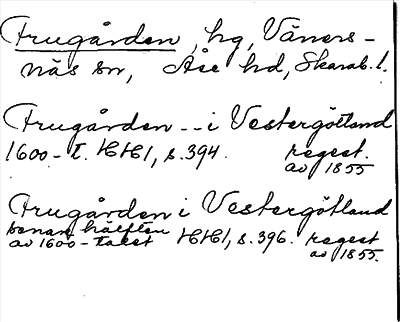 Frugården, hg, Väners-
näs sn, Åse hd, Skarab. l.
Frugården -- i Vestergötland
1600-t. HH1, s. 394. regest.
av 1855
Frugården i Vestergötland
senare hälften
av 1600-talet HH1, s. 396. regest
av 1855.